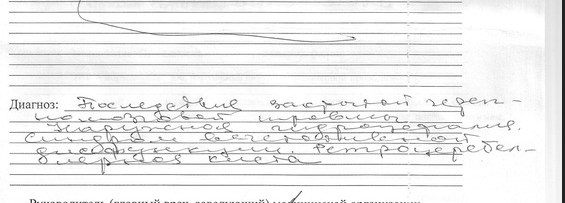 Диагноз: Последствия закрытой череп-
номозговой травмы.
Наружная гидроцефалия.
Синдром вегетативной
дисфункции. Ретроцеребел-
лярная киста
Руководитель (главный врач, заведующий) медицинской организации